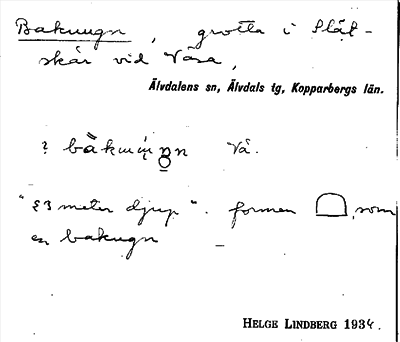 Bakuugn, grotta i Slåt-
skär vid Våsa,
Älvdalens sn, Älvdals tg, Kopparbergs län.
? Vå.
"2,3 meter djup". formen , som
en bakugn
HELGE LINDBERG 1934.